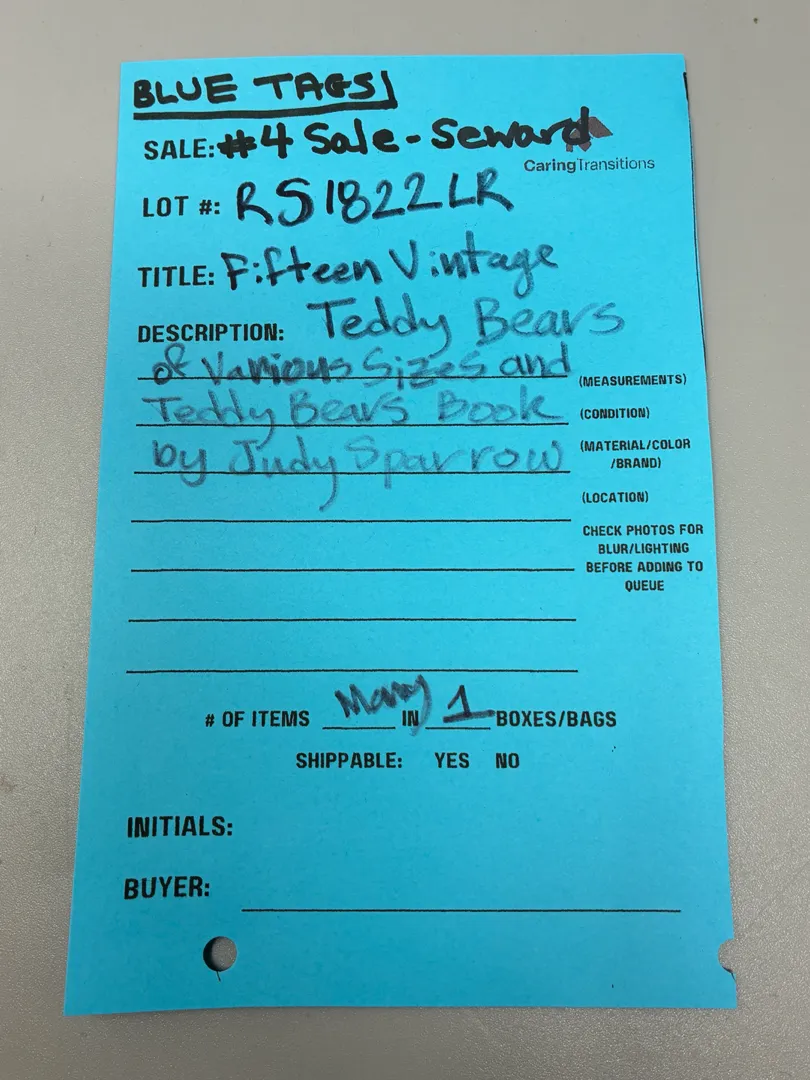 BLUE TAGS
SALE: #4 Sale-Seward
CaringTransitions
LOT #: RS1822LR
TITLE: Fifteen Vintage
DESCRIPTION: Teddy Bears
of Various Sizes and
(MEASUREMENTS)
Teddy Bears Book
(CONDITION)
by Judy Sparrow
(MATERIAL/COLOR
/BRAND)
(LOCATION)
CHECK PHOTOS FOR
BLUR/LIGHTING
BEFORE ADDING TO
QUEUE
# OF ITEMS Many IN 1 BOXES/BAGS
SHIPPABLE: YES NO
INITIALS:
BUYER: